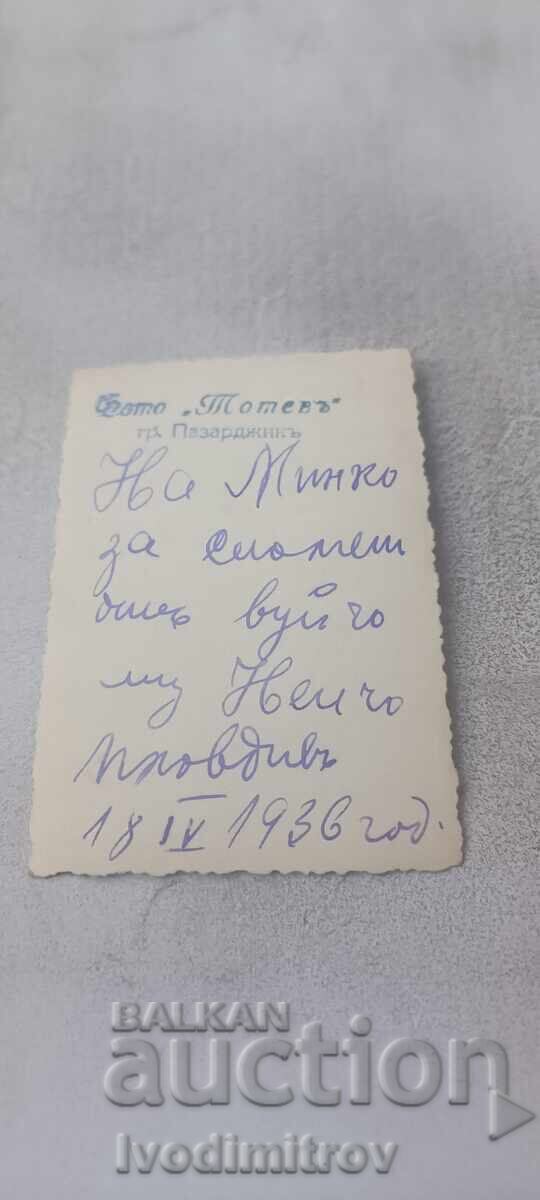 Фото „Тотевъ"
гр. Пазарджикъ
На Минко
за спомен
отъ вуйчо
му Ненчо
Пловдивъ
18 IV 1936 год.
BALKAN
auction
Ivodimitrov